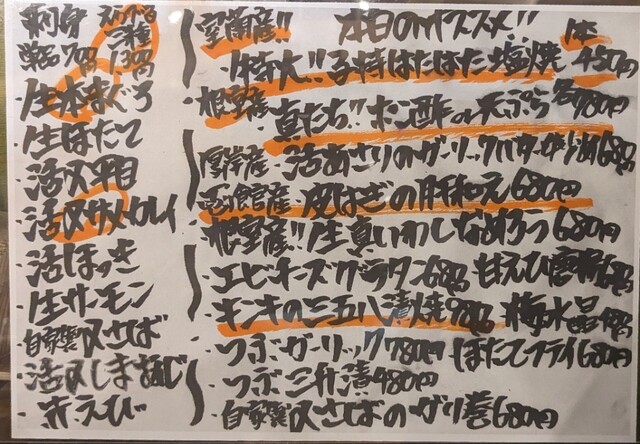 刺身
単品780円
三種
1,380円
生本まぐろ
生ほたて
活〆平目
活〆サメカレイ
活ほっき
生サーモン
自家製〆さば
活〆しま
赤えび
室蘭産!! 本日のオススメ!!
特大!!子持はたはた塩焼 1本 450円
根室産 真たち!!ポン酢or天ぷら 各980円
厚岸産 活あさりのガーリックバター 680円
函館産 皮はぎの肝和え680円
根室産!!生真いわしなめろう680円
エビチーズグラタン680 甘えび唐揚680
キンキの三五八漬焼980円 梅水晶
つぶガーリック780円 ほたてフライ680円
つぶ三升漬480円
自家製〆さばのガリ巻680円